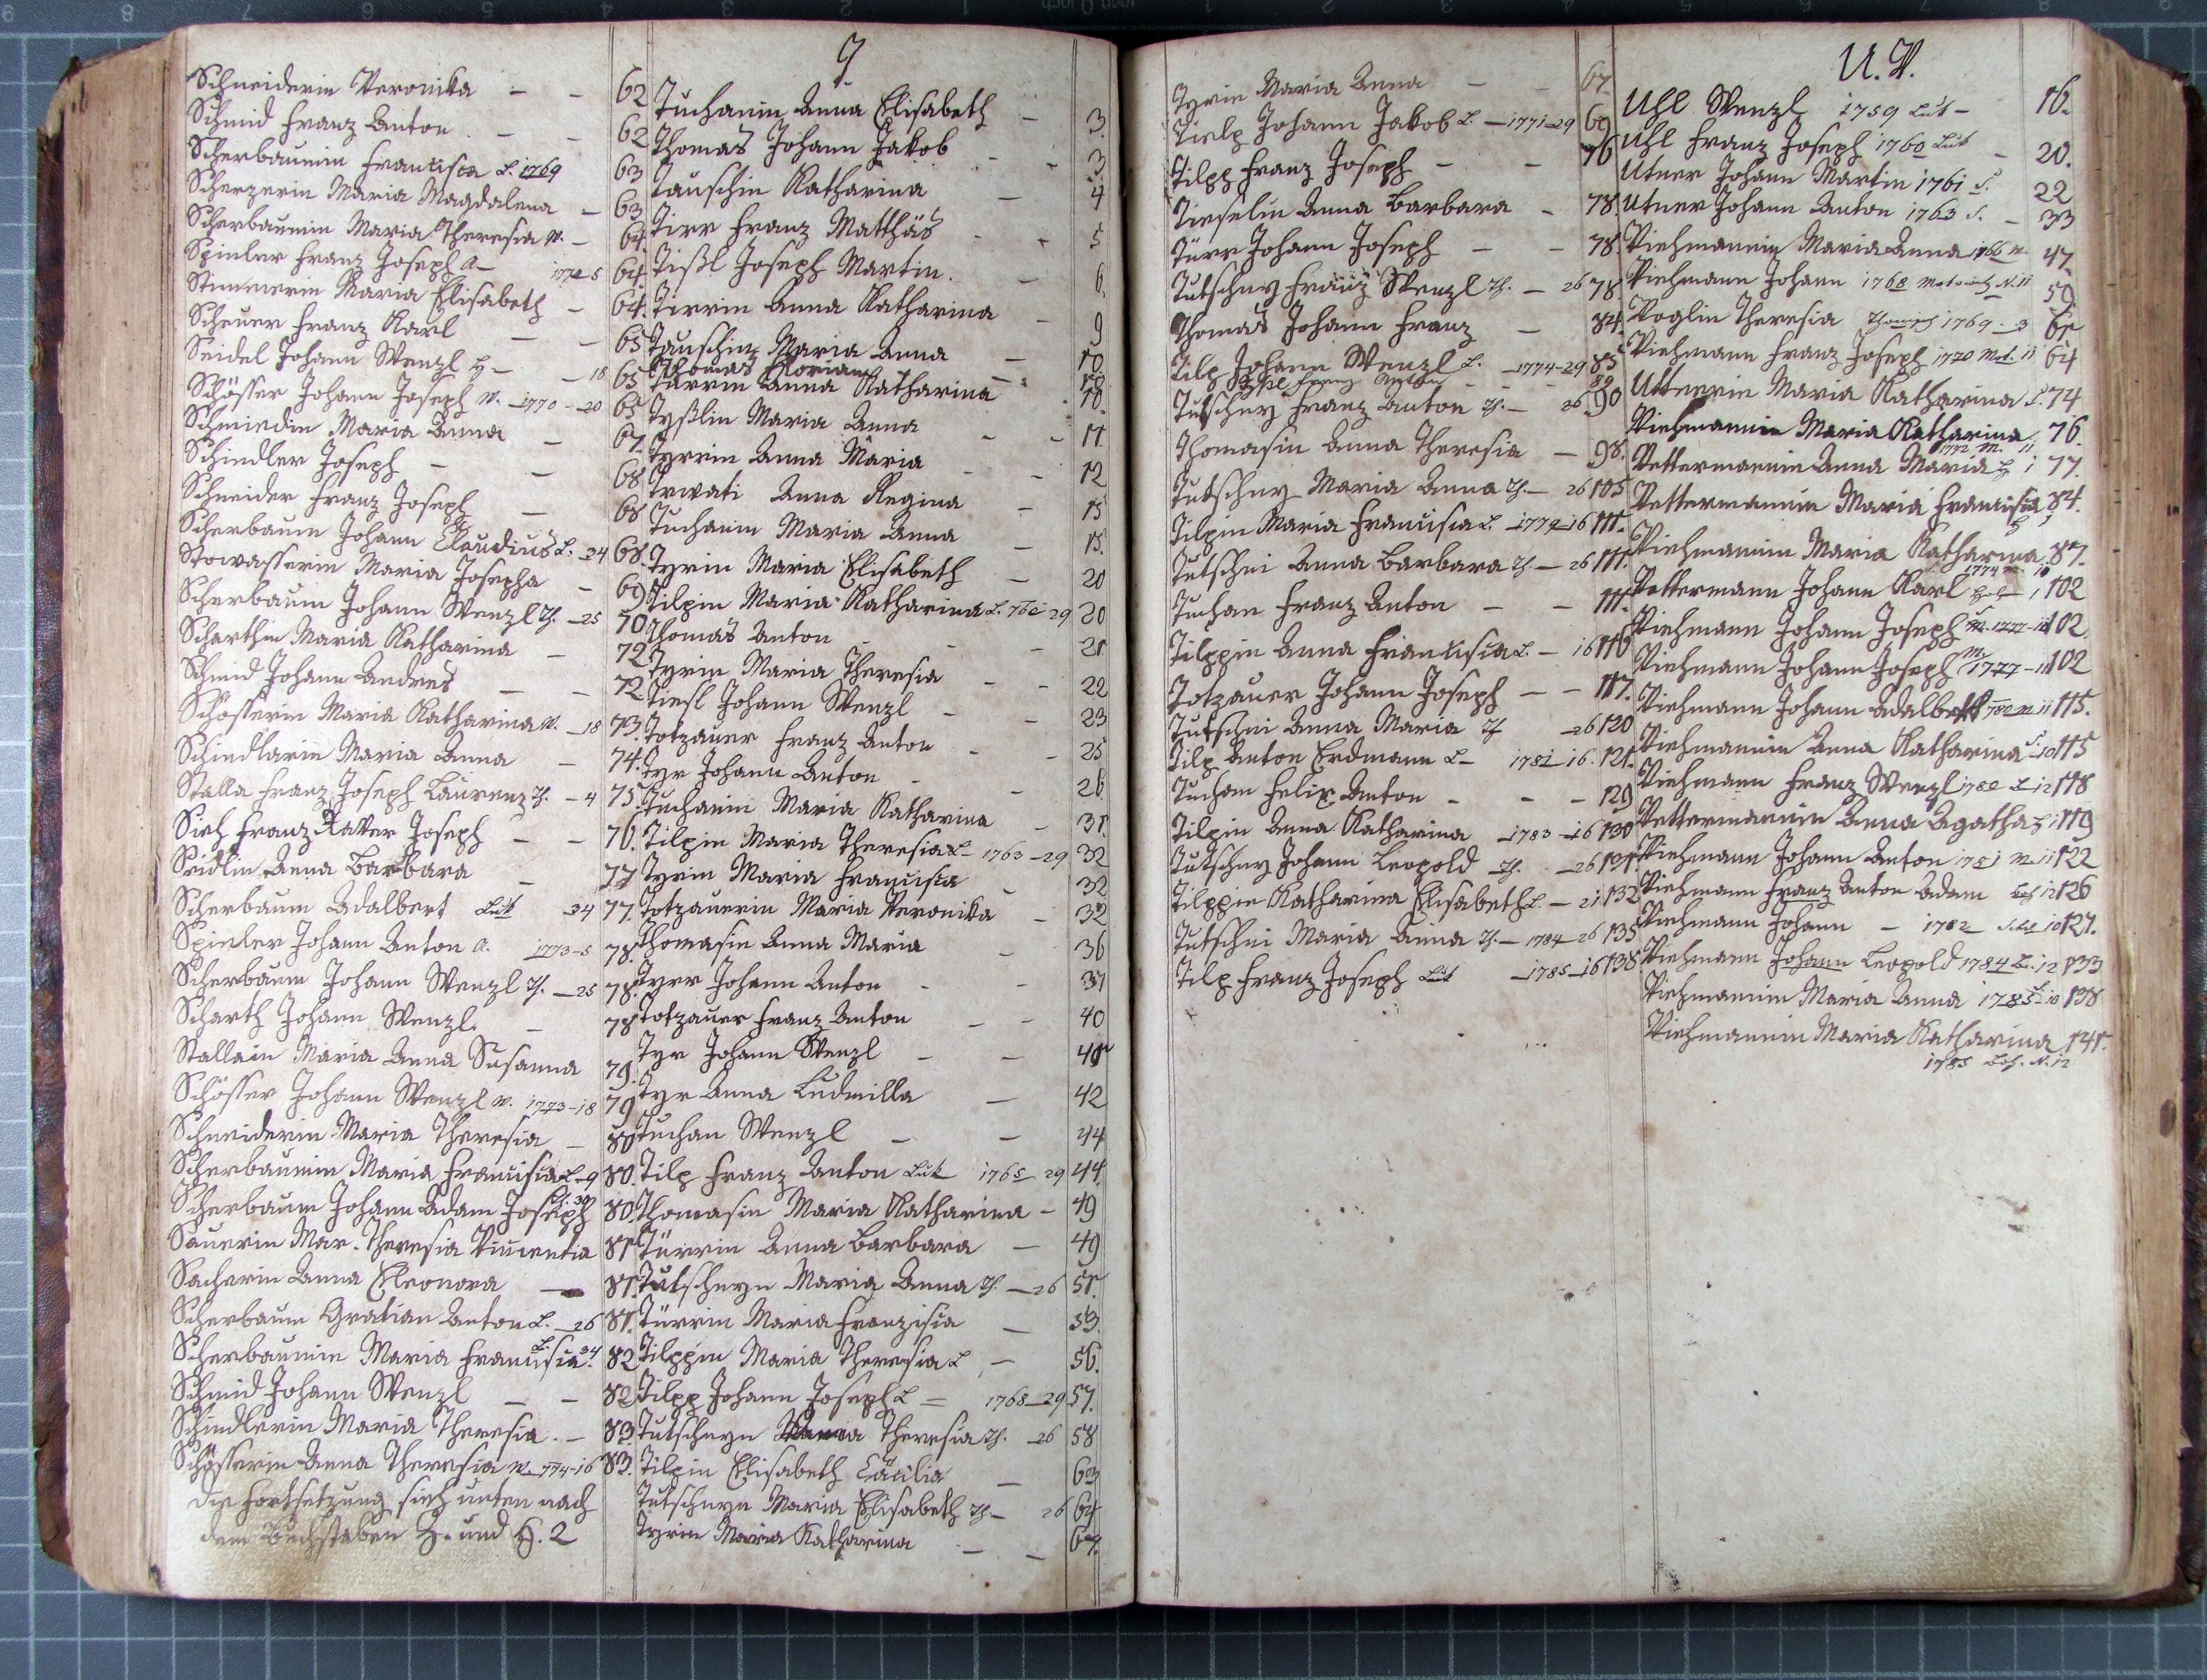 Schneiderin Veronika — — 62
Schmid Franz Anton — — 62
Scherbaumin Francisca L. 1769 63
Scherzerin Maria Magdalena — 63
Scherbaumin Maria Theresia W. — 64.
Spinler Franz Joseph A — 1772-5 64.
Maria Elisabeth — 64.
Scheuer Franz Karl — — 65
Seidel Johann Wenzl H — — 18 65
Schösser Johann Joseph W. — 1770 — 20 65
Schmiedin Maria Anna — 67.
Schindler Joseph — — 68
Schneider Franz Joseph — 68
Scherbaum Johann Claudius L. — 34 68.
Stowasserin Maria Josepha — 69
Scherbaum Johann Wenzl Th. — 25 70.
Scharthin Maria Katharina — 72
Schmid Johann Andres — — 72
Schösserin Maria Katharina W. — 18 73.
Schindlerin Maria Anna — 74.
Stalla Franz Joseph Laurenz Th. — 4 75.
Sieh Franz Xaver Joseph — — 76.
Seidlin Anna Barbara — 77
Scherbaum Adalbert Lut 34 77.
Spinler Johann Anton A. 1773-5 78.
Scherbaum Johann Wenzl Th. — 25 78.
Scharth Johann Wenzl. — 78
Stallain Maria Anna Susanna 79.
Schösser Johann Wenzl W. 1773-18 79
Schneiderin Maria Theresia — 80
Scherbaumin Maria Francisca L — 9 80.
Scherbaum Johann Adam Joseph 80.
Sauerin Mar. Theresia Vincentia 81
Sacherin Anna Eleonora — 81.
Scherbaum Gratian Anton L. — 26 81.
Scherbaumin Maria Francisca L. 34 82
Schmid Johann Wenzl — — 82
Schindlerin Maria Theresia. — 83.
Schösserin Anna Theresia W. 774-16 83.
die Fortsetzung sieh unten nach
dem Buchstaben Z. und H. 2
T.
Tuchanin Anna Elisabeth — 3.
Thomas Johann Jakob — — 3.
Tauschin Katharina — 4
Tirr Franz Matthäs — — 5
Tißl Joseph Martin. — 6.
Tirrin Anna Katharina — 9
Tauschin Maria Anna — 10.
Thomas Florian
Türrin Anna Katharina — 10
Tyßlin Maria Anna — — 11.
Tyrrin Anna Maria — — 12
Trwati Anna Regina — 15
Tuchanin Maria Anna — 15.
Tyrin Maria Elisabeth — 20
Tilpin Maria Katharina L. 29 20
Thomas Anton — — 21
Tyrin Maria Theresia — — 22
Tiesl Johann Wenzl — — 23
Totzauer Franz Anton — — 25
Tyr Johann Anton — — 26
Tuchanin Maria Katharina — 31.
Tilpin Maria Theresia L — 1763 — 29 32
Tyrin Maria Francisca — 32
Totzauerin Maria Veronika — 32
Thomasin Anna Maria — 36
Tyrr Johann Anton — — 37
Totzauer Franz Anton — — 40
Tyr Johann Wenzl — — 41
Tyr Anna Ludmilla — 42
Tuchan Wenzl — — 44
Tilp Franz Anton Lut 1765 29 44.
Thomasin Maria Katharina — 49
Türrin Anna Barbara — 49
Tutscheyn Maria Anna Th. — 26 51.
Türrin Maria Franzisca — 53.
Tilppin Maria Theresia L — 56.
Tilpp Johann Joseph L = 1768 — 29 57.
Tutscheyn Theresia Th. — 26 58
Tilpin Elisabeth Cäcilia — 63
Tutscheyn Maria Elisabeth Th — 26 64
Tyrin Maria Katharina — — 67.
Tyrin Maria Anna — — 67.
Tielp Johann Jakob L. — 1771 — 29 69
Tilpp Franz Joseph — — 76
Tieselin Anna Barbara — 78.
Türr Johann Joseph — — 78.
Tutschey Franz Wenzl Th. — 26 78
Thomas Johann Franz — 84.
Tilp Johann Wenzl L. — 1774-29 85
Tutschey Franz Anton Th. — 26 90
Thomasin Anna Theresia — 98.
Tutschey Maria Anna Th. — 26 105
Tilpin Maria Francisca L. — 1779-16 111.
Tutschei Anna Barbara Th — 26 111.
Tuchan Franz Anton — — 111.
Tilppin Anna Francisca L. — 16 116
Totzauer Johann Joseph — — 117.
Tutschei Anna Maria Th — 26 120
Tilp Anton Erdmann L — 1781 — 16. 121.
Tuchan Felix Anton — — — 129
Tilpin Anna Katharina — 1783 — 16 130
Tutschey Johann Leopold Th. — 26 131.
Tilppin Katharina Elisabeth L. — 21 132
Tutschei Maria Anna Th. — 1784 — 26 135
Tilp Franz Joseph Lut — 1785 — 16 138.
U. V.
Uhl Wenzl 1759 Lut — 16.
Uhl Franz Joseph 1760 Lut — 20.
Utner Johann Martin 1761 S. 22
Utner Johann Anton 1763 S. — 33
Viehmannin Maria Anna 1766 M. 47.
Viehmann Johann 1768 N. 11 59
Voglin Theresia 1769 — 3
Viehmann Franz Joseph 1770 11 64
Uttnerin Maria Katharina S. 74.
Viehmannin Maria Katharina 76.
1772 M. 11
Vettermannin Anna Maria 77.
Vettermannin Maria Francisca 84.
Viehmannin Maria Katharina 87.
Vettermann Johann Karl 102
Viehmann Johann Joseph M. 1777 — 11 102.
Viehmann Johann Joseph M. 1777 — 11 102
Viehmann Johann Adalbert M 11 115.
Viehmannin Anna Katharina S. 10 115
Viehmann Franz Wenzl 1780 L — 12 118
Vettermannin Anna Agatha 119
Viehmann Johann Anton 1781 M. 11 122
Viehmann Franz Anton Adam 12 126
Viehmann Johann — 1782 10 127.
Viehmann Johann Leopold 1784 L. 12 133
Viehmannin Maria Anna 1785 10 138
Viehmannin Maria Katharina 141.
1785 N. 12